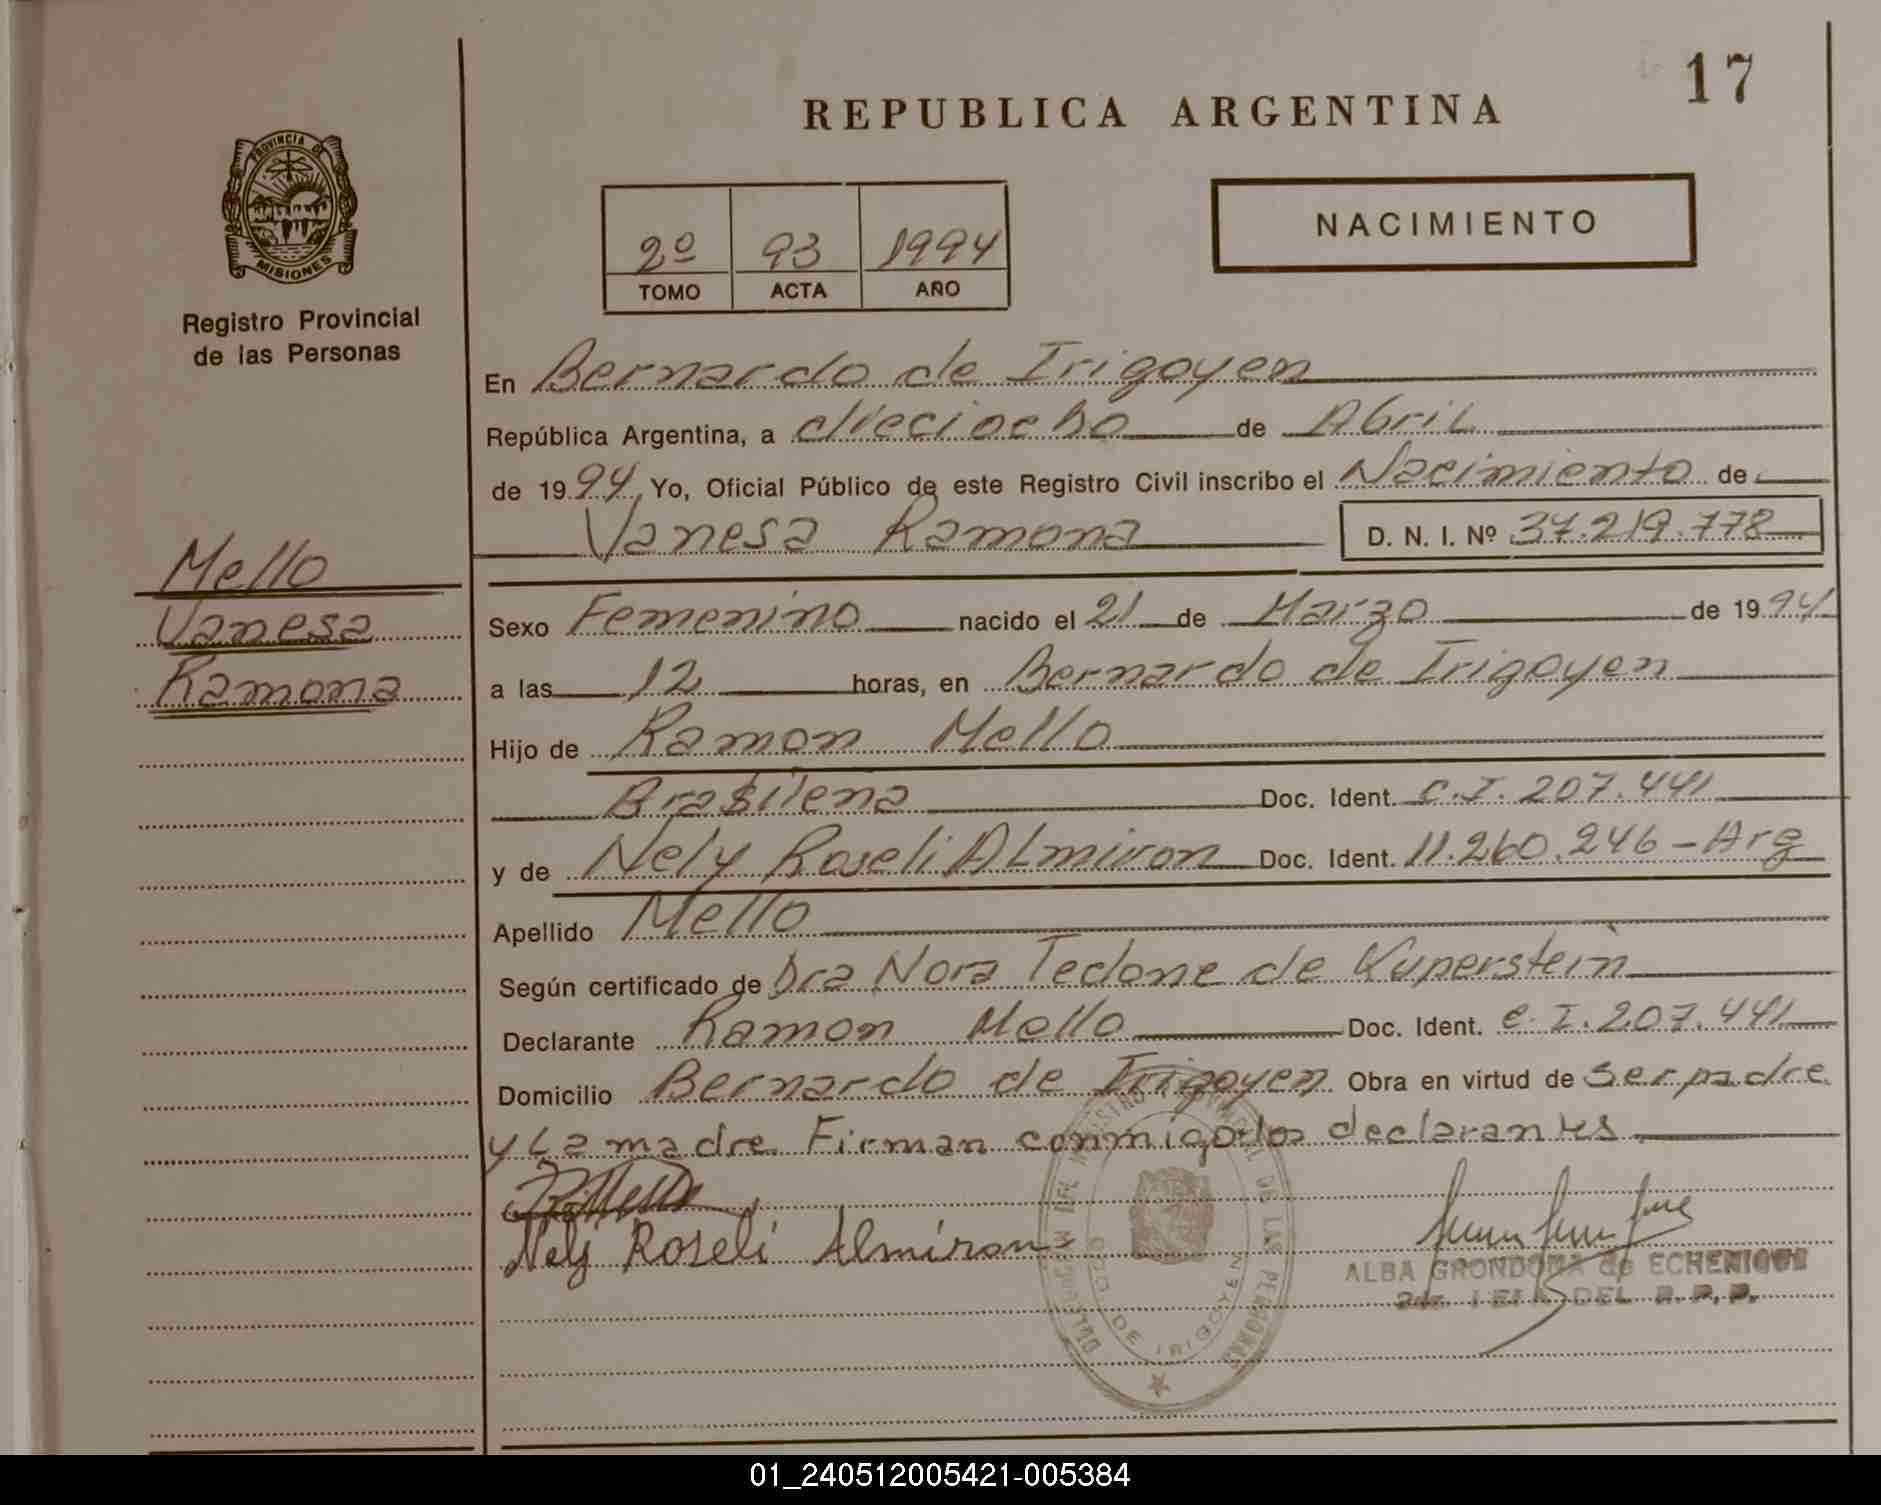 17
REPUBLICA ARGENTINA
PROVINCIA DE
MISIONES
Registro Provincial
de las Personas
2º 93 1994
TOMO ACTA AÑO
NACIMIENTO
En Bernardo de Irigoyen
República Argentina, a dieciocho de Abril
de 1994 Yo, Oficial Público de este Registro Civil inscribo el Nacimiento de
Vanesa Ramona D. N. I. Nº 37.219.778
Mello
Vanesa
Ramona
Sexo Femenino nacido el 21 de Marzo de 1994
a las 12 horas, en Bernardo de Irigoyen
Hijo de Ramon Mello
Brasilena Doc. Ident. C.I. 207.441
y de Nely Roseli Almiron Doc. Ident. 11.260.246 - Arg
Apellido Mello
Según certificado de Dra Nora Tedone de Kuperstein
Declarante Ramon Mello Doc. Ident. C.I. 207.441
Domicilio Bernardo de Irigoyen Obra en virtud de ser padre
y La madre Firman conmigo los declarantes
Nely Roseli Almiron
ALBA GRONDONA de ECHENIQUE
DEL R. P. P.
DE LAS PERSONAS
DE IRIGOYEN
01_240512005421-005384